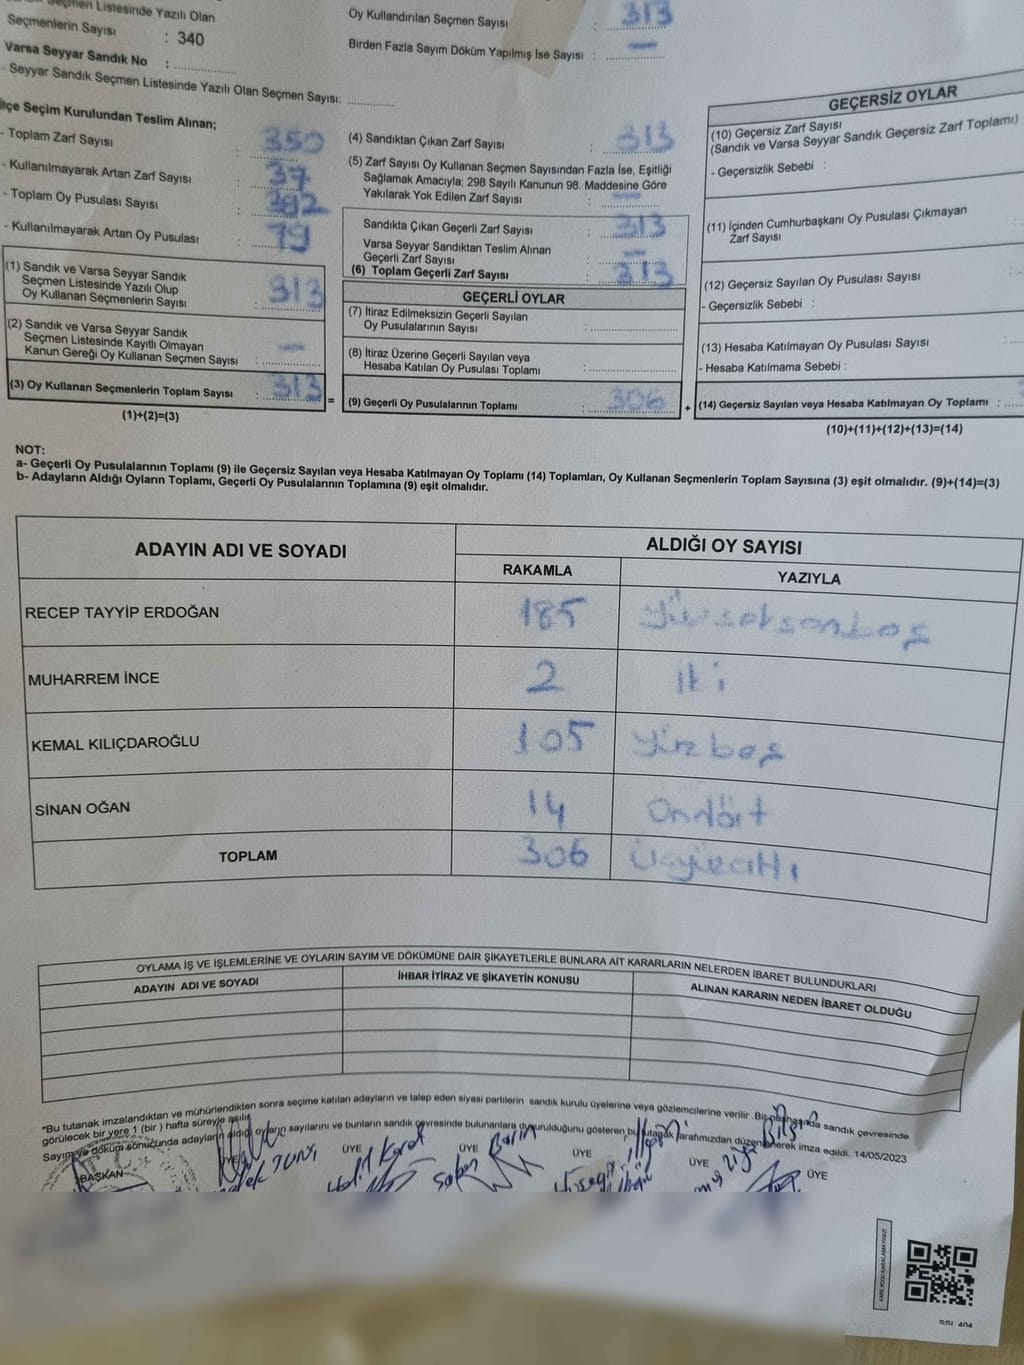 Seçmen Listesinde Yazılı Olan
Seçmenlerin Sayısı : 340
Varsa Seyyar Sandık No :
- Seyyar Sandık Seçmen Listesinde Yazılı Olan Seçmen Sayısı:
Oy Kullandırılan Seçmen Sayısı : 313
Birden Fazla Sayım Döküm Yapılmış İse Sayısı : —
İlçe Seçim Kurulundan Teslim Alınan;
- Toplam Zarf Sayısı : 350
- Kullanılmayarak Artan Zarf Sayısı : 37
- Toplam Oy Pusulası Sayısı :
- Kullanılmayarak Artan Oy Pusulası : 79
(1) Sandık ve Varsa Seyyar Sandık
Seçmen Listesinde Yazılı Olup
Oy Kullanan Seçmenlerin Sayısı : 313
(2) Sandık ve Varsa Seyyar Sandık
Seçmen Listesinde Kayıtlı Olmayan
Kanun Gereği Oy Kullanan Seçmen Sayısı : —
(3) Oy Kullanan Seçmenlerin Toplam Sayısı : 313
(1)+(2)=(3)
(4) Sandıktan Çıkan Zarf Sayısı : 313
(5) Zarf Sayısı Oy Kullanan Seçmen Sayısından Fazla İse, Eşitliği
Sağlamak Amacıyla; 298 Sayılı Kanunun 98. Maddesine Göre
Yakılarak Yok Edilen Zarf Sayısı : —
Sandıkta Çıkan Geçerli Zarf Sayısı : 313
Varsa Seyyar Sandıktan Teslim Alınan
Geçerli Zarf Sayısı : —
(6) Toplam Geçerli Zarf Sayısı : 313
GEÇERLİ OYLAR
(7) İtiraz Edilmeksizin Geçerli Sayılan
Oy Pusulalarının Sayısı :
(8) İtiraz Üzerine Geçerli Sayılan veya
Hesaba Katılan Oy Pusulası Toplamı :
= (9) Geçerli Oy Pusulalarının Toplamı : 306 +
GEÇERSİZ OYLAR
(10) Geçersiz Zarf Sayısı
(Sandık ve Varsa Seyyar Sandık Geçersiz Zarf Toplamı)
- Geçersizlik Sebebi :
(11) İçinden Cumhurbaşkanı Oy Pusulası Çıkmayan
Zarf Sayısı
(12) Geçersiz Sayılan Oy Pusulası Sayısı
- Geçersizlik Sebebi :
(13) Hesaba Katılmayan Oy Pusulası Sayısı
- Hesaba Katılmama Sebebi :
(14) Geçersiz Sayılan veya Hesaba Katılmayan Oy Toplamı :
(10)+(11)+(12)+(13)=(14)
NOT:
a- Geçerli Oy Pusulalarının Toplamı (9) ile Geçersiz Sayılan veya Hesaba Katılmayan Oy Toplamı (14) Toplamları, Oy Kullanan Seçmenlerin Toplam Sayısına (3) eşit olmalıdır. (9)+(14)=(3)
b- Adayların Aldığı Oyların Toplamı, Geçerli Oy Pusulalarının Toplamına (9) eşit olmalıdır.
ADAYIN ADI VE SOYADI
ALDIĞI OY SAYISI
RAKAMLA YAZIYLA
RECEP TAYYİP ERDOĞAN 185 Yüzseksenbeş
MUHARREM İNCE 2 iki
KEMAL KILIÇDAROĞLU 105 Yüzbeş
SİNAN OĞAN 14 Ondört
TOPLAM 306 Üçyüzaltı
OYLAMA İŞ VE İŞLEMLERİNE VE OYLARIN SAYIM VE DÖKÜMÜNE DAİR ŞİKAYETLERLE BUNLARA AİT KARARLARIN NELERDEN İBARET BULUNDUKLARI
ADAYIN ADI VE SOYADI
İHBAR İTİRAZ VE ŞİKAYETİN KONUSU
ALINAN KARARIN NEDEN İBARET OLDUĞU
*Bu tutanak imzalandıktan ve mühürlendikten sonra seçime katılan adayların ve talep eden siyasi partilerin sandık kurulu üyelerine veya gözlemcilerine verilir. Bir nüshası da sandık çevresinde
görülecek bir yere 1 (bir) hafta süreyle asılır.
Sayım ve döküm sonucunda adayların aldığı oyların sayılarını ve bunların sandık çevresinde bulunanlara duyurulduğunu gösteren bu tutanak tarafımızdan düzenlenerek imza edildi. 14/05/2023
BAŞKAN ÜYE ÜYE ÜYE ÜYE ÜYE ÜYE